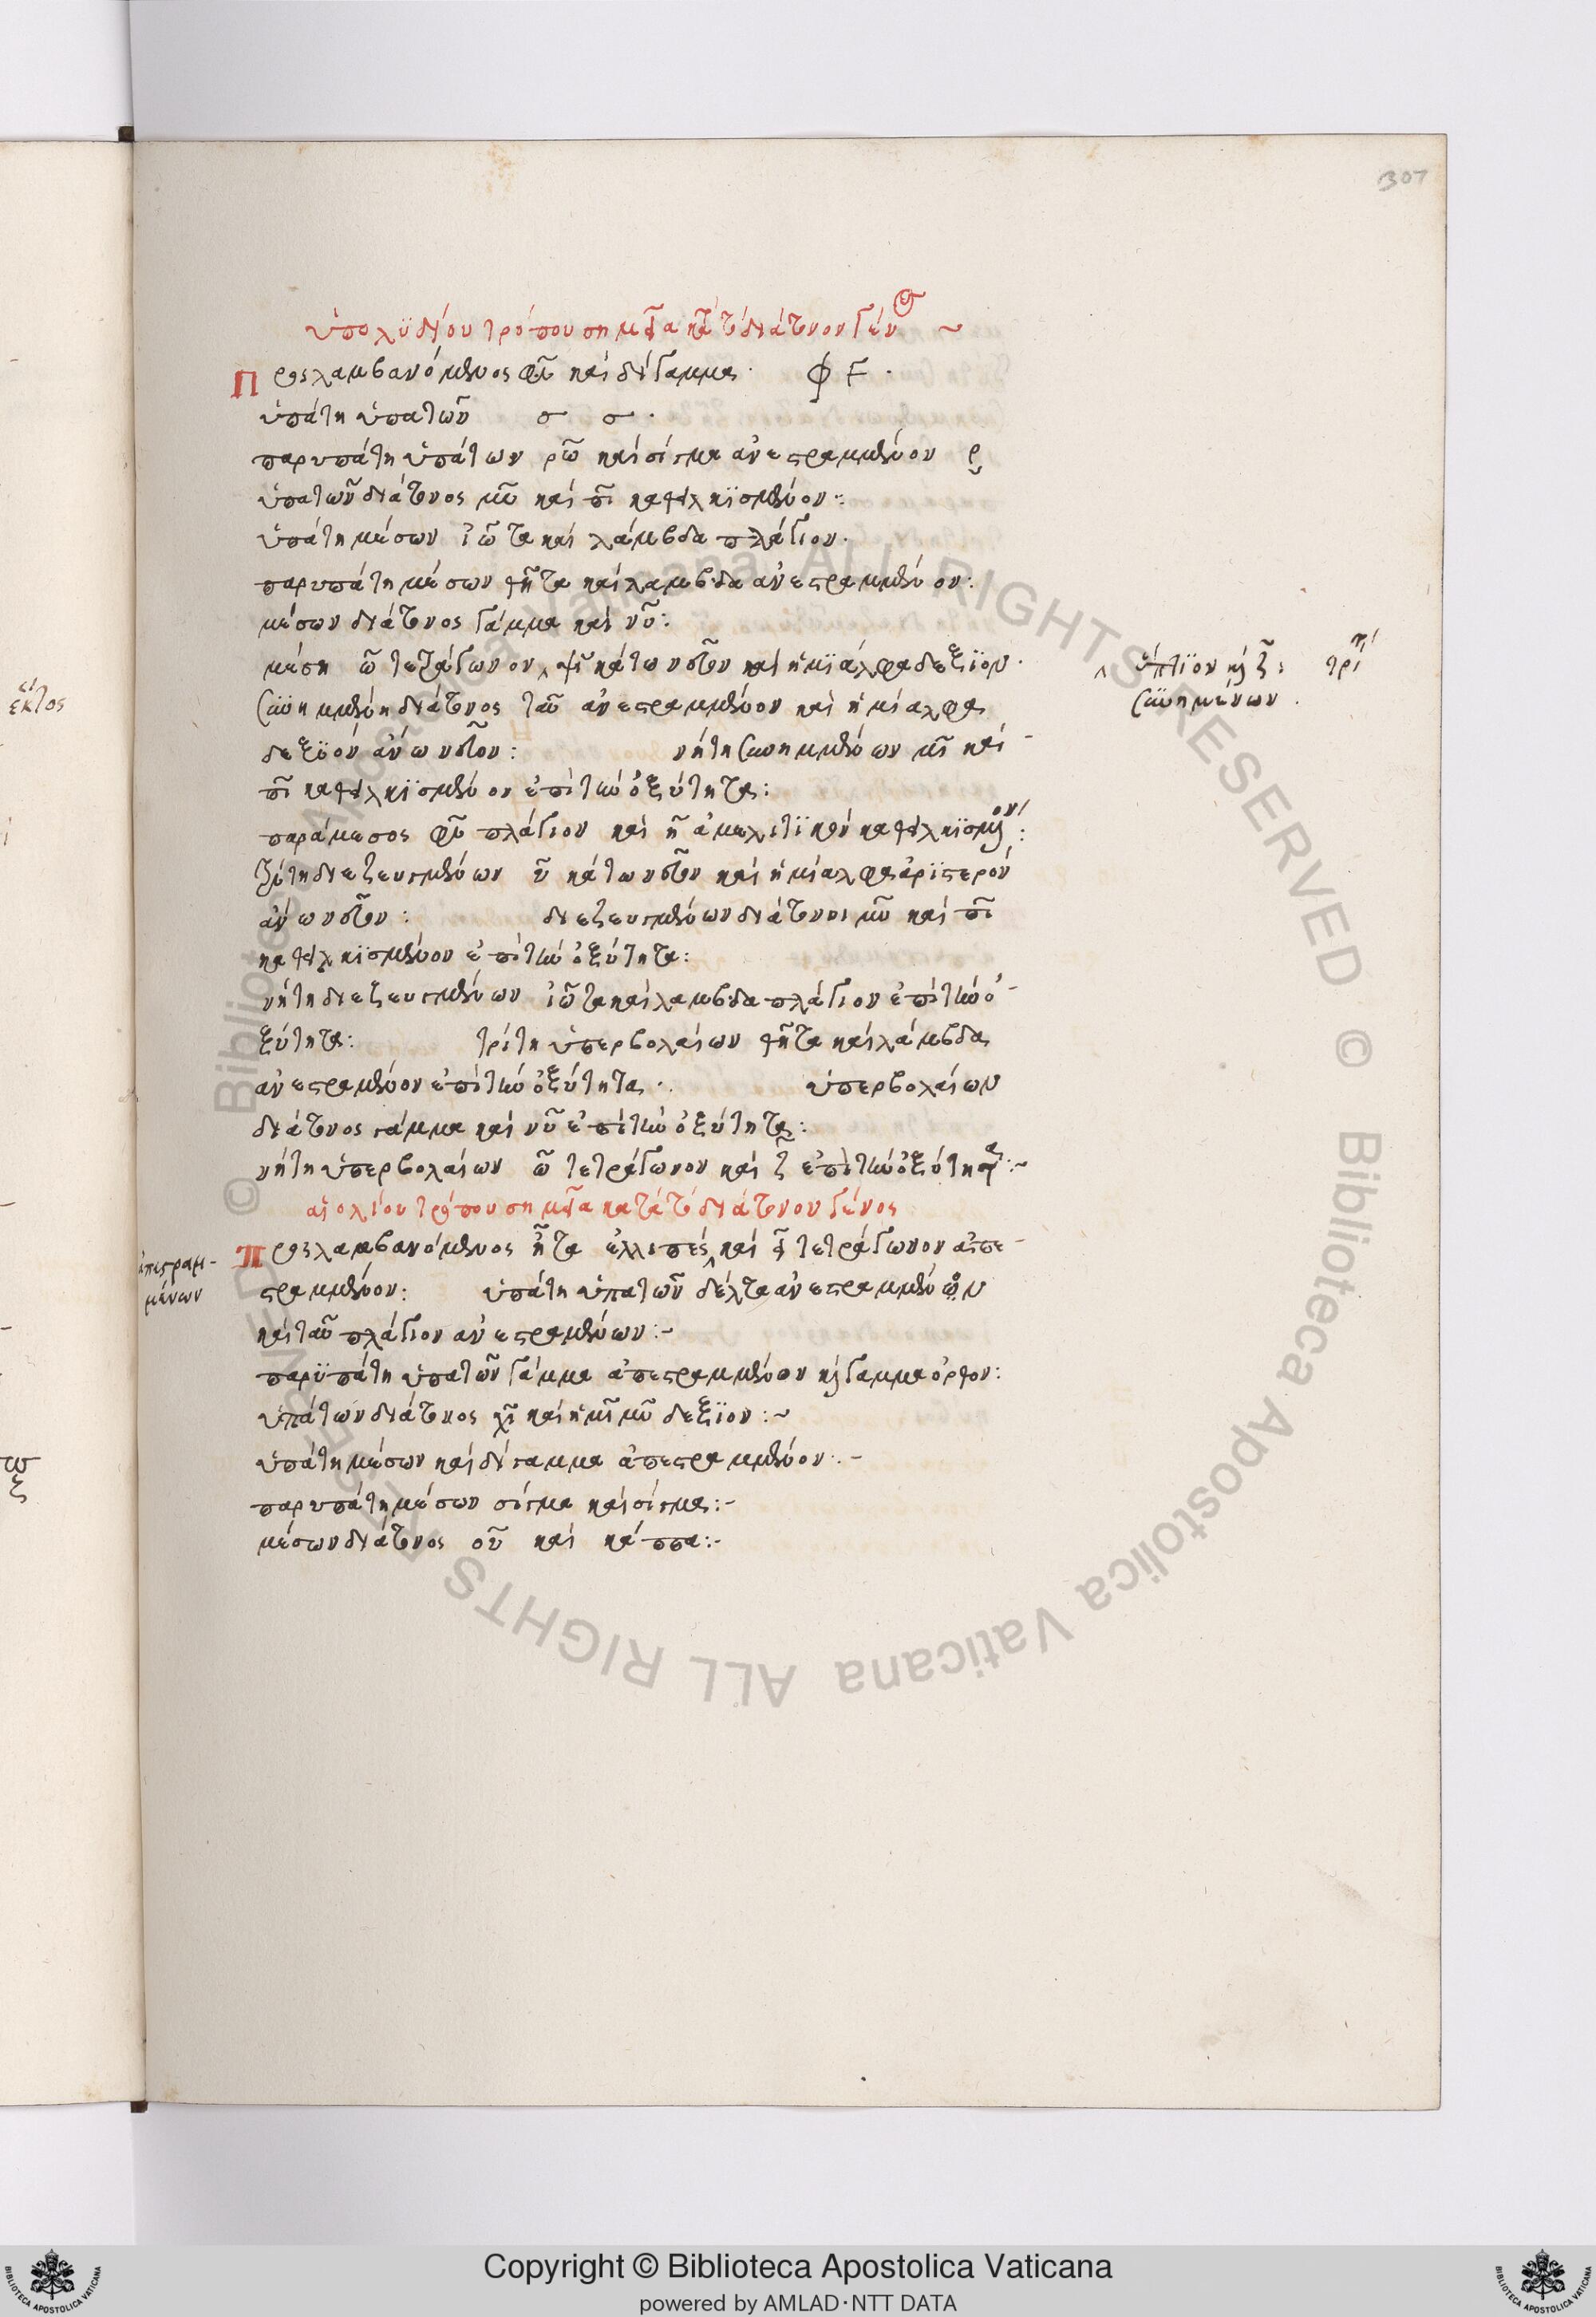 307
ὑπολυδίου τρόπου σημεῖα κατὰ τὸ διάτονον γένος ~
Προςλαμβανόμενος φῦ καὶ δίγαμμα· φ Ϝ ·
ὑπάτη ὑπατῶν σ σ ·
παρυπάτη ὑπάτων ρῶ καὶ σίγμα ἀνεστραμμένον
ὑπατῶν διάτονος μῦ καὶ πῖ καθελκϊσμένον:
ὑπάτη μέσων ἰῶτα καὶ λάμβδα πλάγιον·
παρυπάτη μέσων θῆτα καὶ λαμβδα ἀνεστραμμένον:
μέσων διάτονος γάμμα καὶ νῦ:
μέση ὦ τετράγωνον
ὕπτϊον καὶ ζ: τρίτη
συνημμένων.
συνημμένη διάτονος ταῦ ἀνεστραμμένον καὶ ἡμίαλφα
δεξϊὸν ἄνω νεῦον: νήτη συνημμένων μῦ καὶ
πῖ καθελκϊσμένον ἐπὶ τὴν ὀξύτητα:
παράμεσος φῦ πλάγιον καὶ ἦ ἀμελιτϊκὸν καθελκϊσμένον:
τρίτη διεζευγμένων ῦ κάτω νεῦον καὶ ἡμίαλφα ἀρϊστερόν
ἄνω νεῦον: διεζευγμένων διάτονος μῦ καὶ πῖ
καθελκϊσμένον ἐπὶ τὴν ὀξύτητα:
νήτη διεζευγμένων ἰῶτα καὶ λαμβδα πλάγιον ἐπὶ τὴν ὀ-
ξύτητα: τρίτη ὑπερβολαίων θῆτα καὶ λάμβδα
ἀνεστραμένον ἐπὶ τὴν ὀξύτητα·. ὑπερβολαίων
διάτονος γάμμα καὶ νῦ ἐπὶ τὴν ὀξύτητα:
νήτη ὑπερβολαίων ὦ τετράγωνον καὶ ζ ἐπὶ τὴν ὀξύτητα:~
αἰολίου τρόπου σημεῖα κατὰ τὸ διάτονον γένος
Προςλαμβανόμενος ἦτα ἐλλιπὲς καὶ τετράγωνον ἀπε-
στραμμένον: ὑπάτη ὑπατῶν δέλτα ἀνεστραμμένον
ἀπεστραμ-
μένων
καὶ ταῦ πλάγιον ἀνεστραμένων:~
παρϋπάτη ὑπατῶν γάμμα ἀπεστραμμένον καὶ γαμμα ὀρθον:
ὑπάτων διάτονος χῖ καὶ ἡμῖ μῦ δεξϊον:~
ὑπάτη μέσων καὶ δίγαμμα ἀπεστραμμένον:-
παρυπάτη μέσων σίγμα καὶ σίγμα:-
μέσων διάτονος οῦ καὶ κάππα:-
ἕκτος
Copyright © Biblioteca Apostolica Vaticana
powered by AMLAD·NTT DATA
© Biblioteca Apostolica Vaticana ALL RIGHTS RESERVED